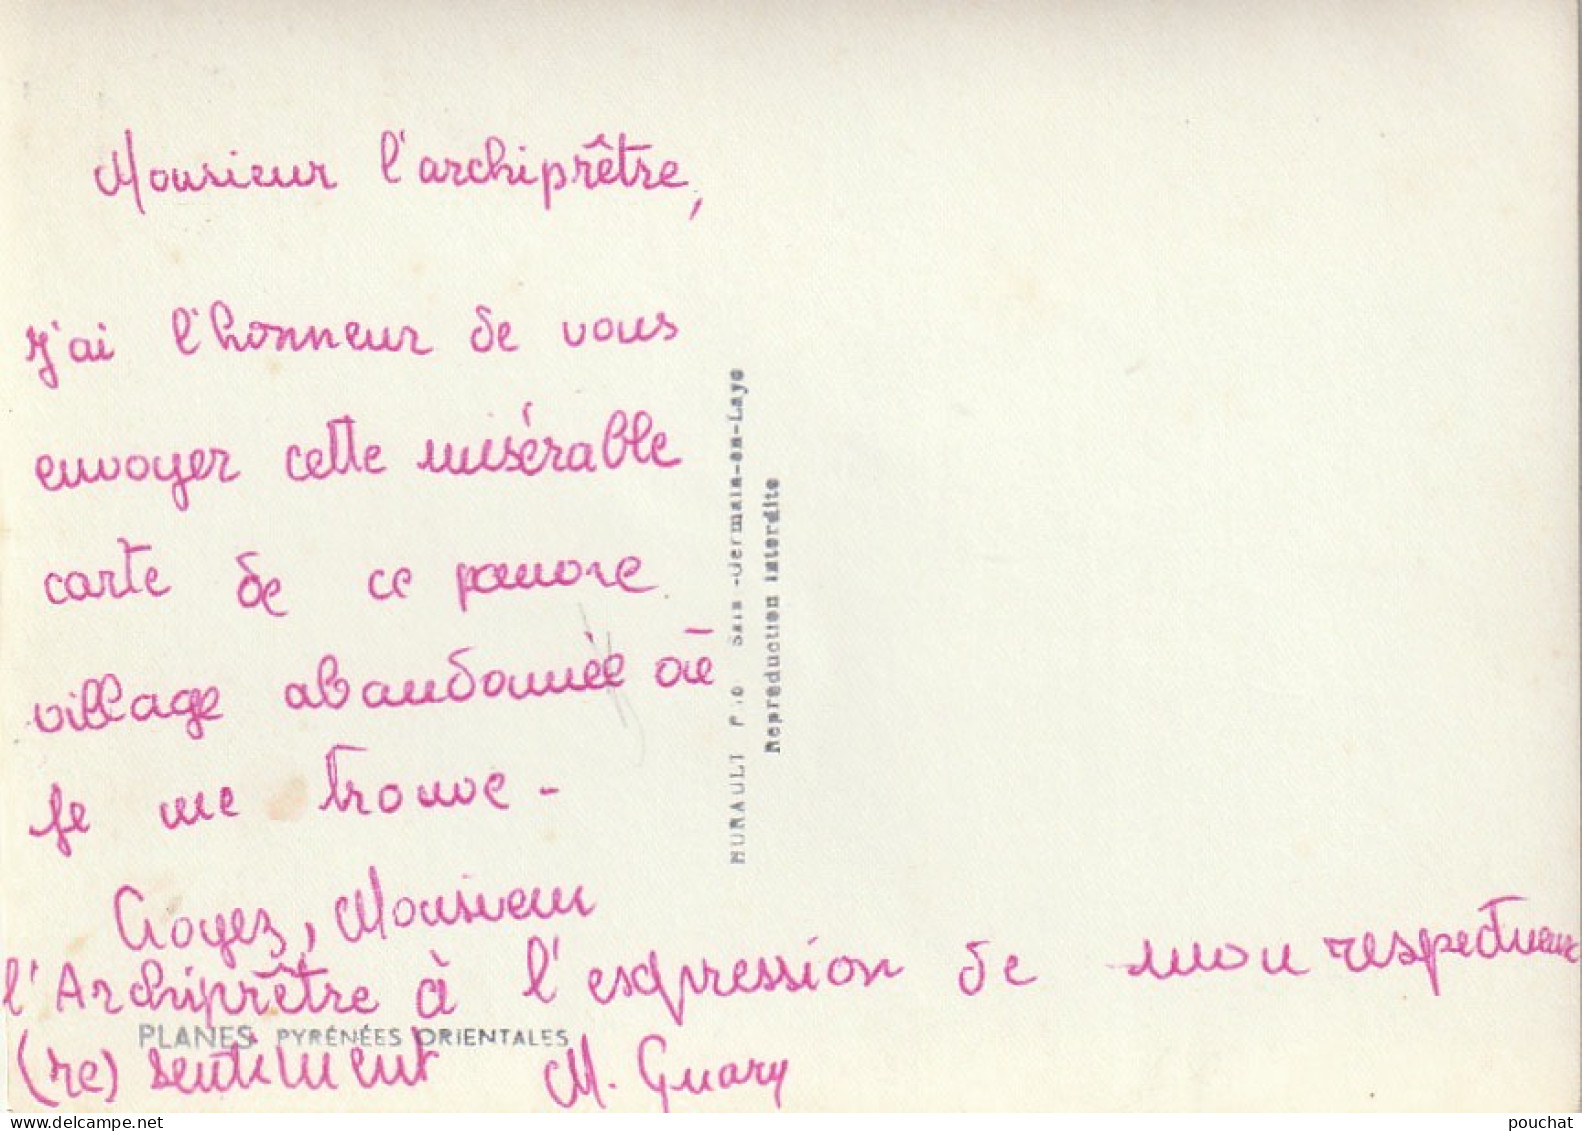 Monsieur l'archiprêtre,
j'ai l'honneur de vous
envoyer cette misérable
carte de ce pauvre
village abandonnée où
je me trouve -
Croyez, Monsieur
l'Archiprêtre à l'expression de mon respectueux
(re) sentiment M. Guary
PLANES PYRÉNÉES ORIENTALES
-Germain-en-Laye
Reproduction interdite
www.delcampe.net
pouchat